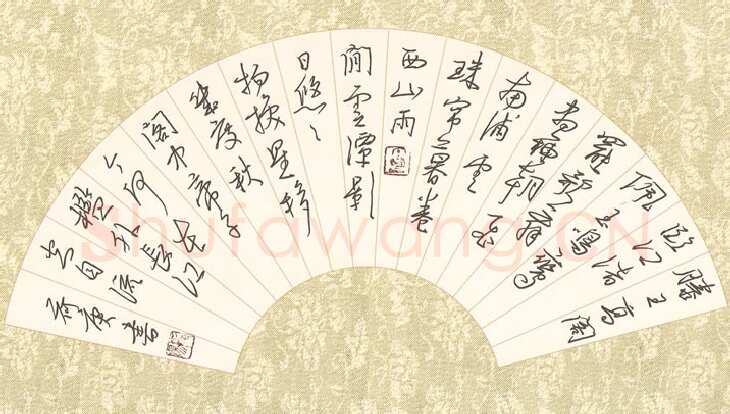 滕王高阁
临江渚
佩玉鸣鸾
罢歌舞
画栋朝飞
南浦雲
珠帘暮卷
西山雨
闲雲潭影
日悠悠
物换星移
几度秋
阁中帝子
今何在
槛外长江
空自流
书
Shufawang.CN